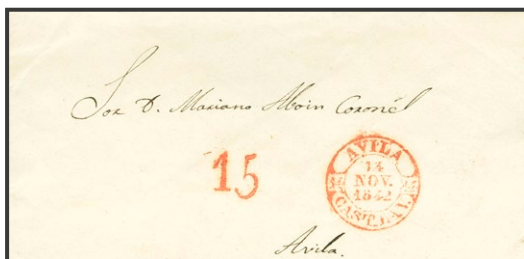 Sor D. Mariano Coronél
15
AVILA
14
NOV.
1842
CAST. LA V.
Avila.